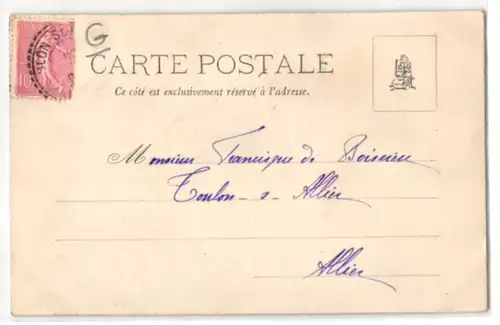 G
CARTE POSTALE
Ce côté est exclusivement réservé à l'adresse.
10
Monsieur Francisque de
Toulon-s-Allier
Allier